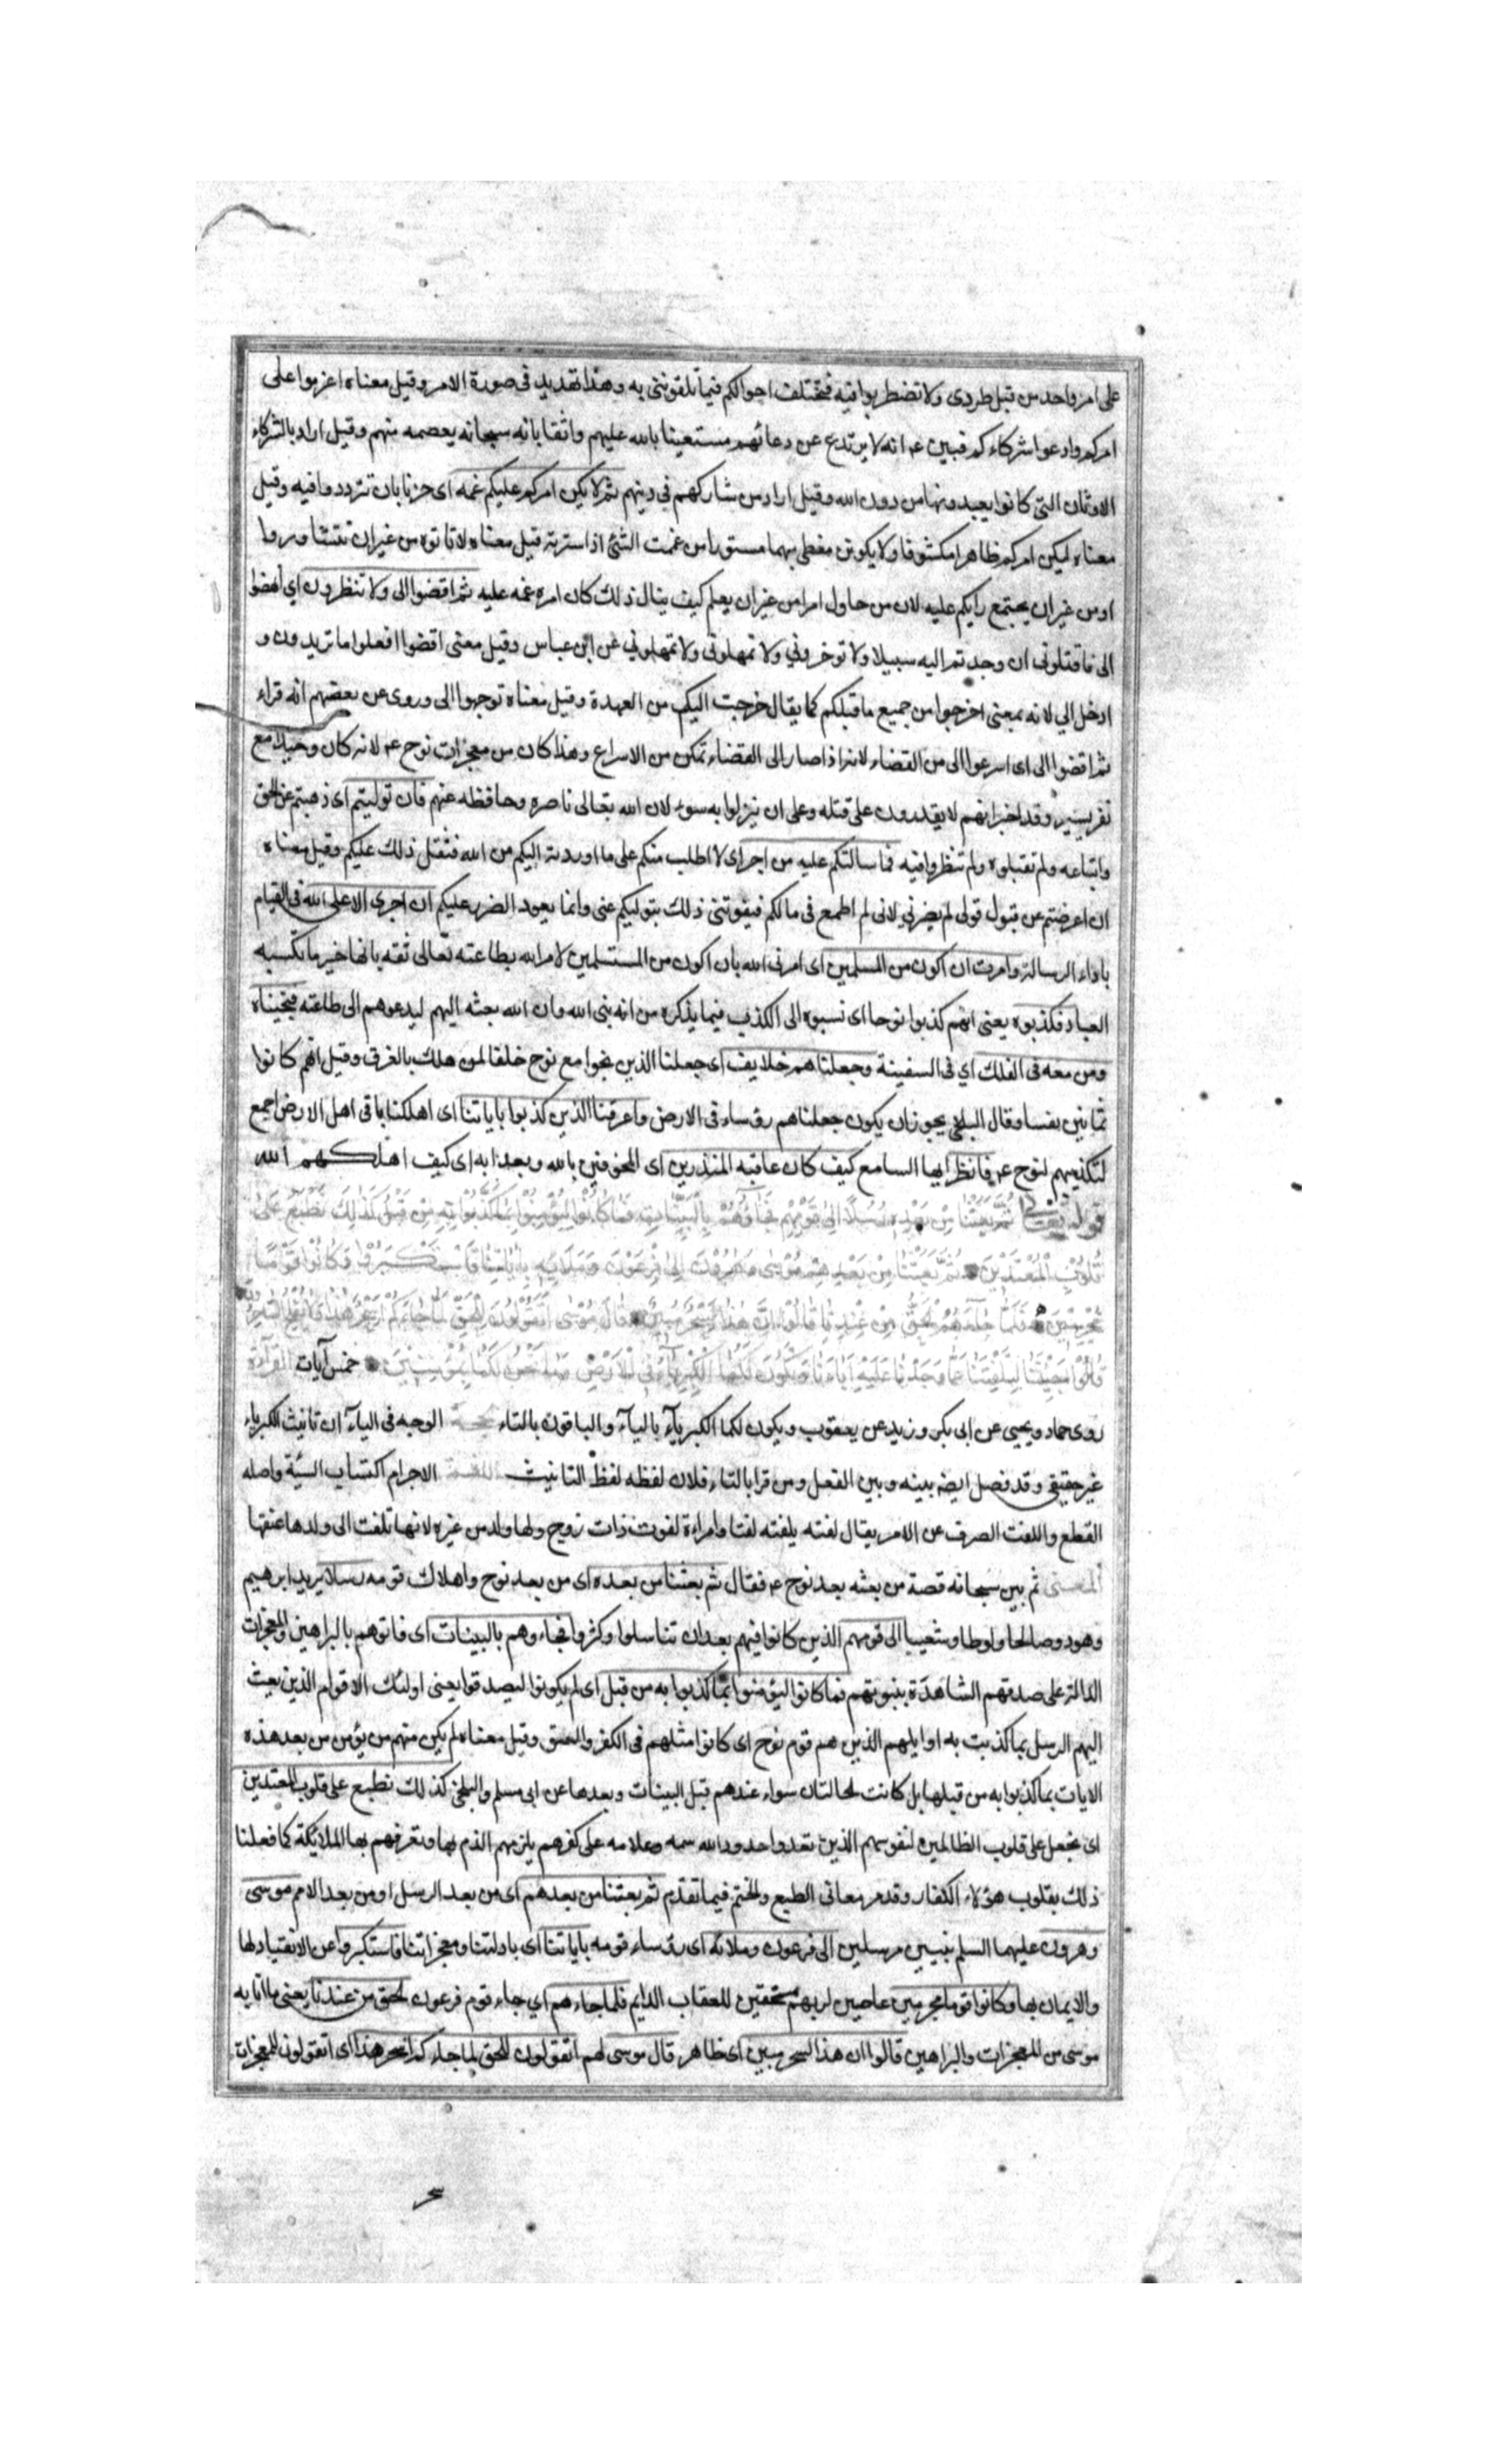 على امر واحد من قبل طردى ولا تضطربوا فيه فتختلف احوالكم فيما تلقوننى به وهذا تهديد فى صورة الامر وقيل معناه اعزموا على
امركم وادعوا شركاءكم فبين عم انه لا يرتدع عن دعائهم مستعينا بالله عليهم واثقا بانه سبحانه يعصمه منهم وقيل اراد بالشركاء
الاوثان التى كانوا يعبدونها من دون الله وقيل اراد من شاركهم في دينهم ثم لا يكن امركم عليكم غمه اى حزنا بان تترددوا فيه وقيل
معناه ليكن امركم ظاهرا مكشوفا ولا يكونن مغطى مبهما مستورا من غممت الشئ اذا سترته قيل معناه لا تاتوه من غير ان تتشاوروا
او من غير ان يجتمع رايكم عليه لان من حاول امرا من غير ان يعلم كيف ينال ذلك كان امره غمه عليه ثم اقضوا الى ولا تنظرون اي انهضوا
الى فاقتلونى ان وجدتم اليه سبيلا ولا توخروني ولا تمهلونى عن ابن عباس وقيل معنى اقضوا افعلوا ما تريدون و
ادخل الي لانه بمعنى اخرجوا من جميع ما قبلكم كما يقال خرجت اليكم من العهدة وقيل معناه توجهوا الى وروى عن بعضهم انه قراء
ثم افضوا الى اى اسرعوا الى من الفضاء لانه اذا صار الى الفضاء تمكن من الاسراع وهذا كان من معجزات نوح عم لانه كان وحيدا مع
نفر يسير وقد اخبر انهم لا يقدرون على قتله وعلى ان ينزلوا به سوء لان الله تعالى ناصره وحافظه عنهم فان توليتم اى ذهبتم عن الحق
واتباعه ولم تقبلوه ولم تنظروا فيه فما سالتكم عليه من اجر اى لا اطلب منكم على ما اوردته اليكم من الله فثقل ذلك عليكم وقيل معناه
ان اعرضتم عن قبول قولى لم يضرني لانى لم اطمع فى مالكم فيفوتنى ذلك بتوليكم عنى وانما يعود الضرر عليكم ان اجرى الا على الله فى القيام
باداء الرسالة وامرت ان اكون من المسلمين اى امرنى الله بان اكون من المستسلمين لامر الله بطاعته تعالى ثقه بانها خير ما تكسبه
العباد فكذبوه يعنى انهم كذبوا نوحا اى نسبوه الى الكذب فيما يذكره من انه نبى الله وان الله بعثه اليهم ليدعوهم الى طاعته فنجيناه
ومن معه فى الفلك اي فى السفينة وجعلناهم خلايف اى جعلنا الذين نجوا مع نوح خلفا لمن هلك بالغرق وقيل انهم كانوا
ثمانين نفسا وقال البلخي يجوز ان يكون جعلناهم رؤساء فى الارض واغرقنا الذين كذبوا باياتنا اى اهلكنا باقى اهل الارض اجمع
لتكذيبهم لنوح عم فانظر ايها السامع كيف كان عاقبه المنذرين اى المخوفين بالله وبعذابه اى كيف اهلكهم الله
قوله تعالى ثُمَّ بَعَثْنَا مِنْ بَعْدِهِ رُسُلًا إِلَى قَوْمِهِمْ فَجَاؤُهُمْ بِالْبَيِّنَاتِ فَمَا كَانُوا لِيُؤْمِنُوا بِمَا كَذَّبُوا بِهِ مِنْ قَبْلُ كَذَلِكَ نَطْبَعُ عَلَى
قُلُوبِ الْمُعْتَدِينَ ثُمَّ بَعَثْنَا مِنْ بَعْدِهِمْ مُوسَى وَهَارُونَ إِلَى فِرْعَوْنَ وَمَلَائِهِ بِآيَاتِنَا فَاسْتَكْبَرُوا وَكَانُوا قَوْمًا
مُجْرِمِينَ فَلَمَّا جَاءَهُمُ الْحَقُّ مِنْ عِنْدِنَا قَالُوا إِنَّ هَذَا لَسِحْرٌ مُبِينٌ قَالَ مُوسَى أَتَقُولُونَ لِلْحَقِّ لَمَّا جَاءَكُمْ أَسِحْرٌ هَذَا وَلَا يُفْلِحُ السَّاحِرُونَ
قَالُوا أَجِئْتَنَا لِتَلْفِتَنَا عَمَّا وَجَدْنَا عَلَيْهِ آبَاءَنَا وَتَكُونَ لَكُمَا الْكِبْرِيَاءُ فِي الْأَرْضِ وَمَا نَحْنُ لَكُمَا بِمُؤْمِنِينَ خمس آيات القراءة
روى حماد ويحيى عن ابى بكر وزيد عن يعقوب ويكون لكما الكبرياء بالياء والباقون بالتاء الحجة الوجه فى الياء ان تانيث الكبرياء
غير حقيقى وقد فصل ايضه بينه وبين الفعل ومن قرا بالتاء فلان لفظه لفظ التانيث اللغة الاجرام اكتساب السيئة واصله
القطع واللفت الصرف عن الامر يقال لفته يلفته لفتا وامراءة لفوت ذات زوج ولها ولد من غيره لانها تلفت الى ولدها عنقها
المعنى ثم بين سبحانه قصة من بعثه بعد نوح عم فقال ثم بعثنا من بعده اى من بعد نوح واهلاك قومه رسلا يريد ابرهيم
وهود وصالحا ولوطا وشعيبا الى قومهم الذين كانوا فيهم بعد ان تناسلوا وكثروا فجاءوهم بالبينات اى فاتوهم بالبراهين والمعجزات
الدالة على صدقهم الشاهدة بنبوتهم فما كانوا ليؤمنوا بما كذبوا به من قبل اى لم يكونوا ليصدقوا يعنى اولئك الاقوام الذين بعث
اليهم الرسل بما كذبت به اوايلهم الذين هم قوم نوح اى كانوا مثلهم فى الكفر والعتو وقيل معناه لم يكن منهم من يؤمن من بعد هذه
الايات بما كذبوا به من قبلها بل كانت الحالتان سواء عندهم قبل البينات وبعدها عن ابى مسلم والبلخى كذلك نطبع على قلوب المعتدين
اى نجعل على قلوب الظالمين لنفوسهم الذين تعدوا حدود الله سمه وعلامه على كفرهم يلزمهم الذم بها وتعرفهم بها الملائكة كما فعلنا
ذلك بقلوب هؤلاء الكفار وقد مر معانى الطبع والختم فيما تقدم ثم بعثنا من بعدهم اى من بعد الرسل او من بعد الامم موسى
وهرون عليهما السلم نبيين مرسلين الى فرعون وملائه اى رؤساء قومه باياتنا اى بادلتنا ومعجزاتنا فاستكبروا عن الانقياد لها
والايمان بها وكانوا قوما مجرمين عاصين لربهم مستحقين للعقاب الدايم فلما جاءهم اي جاء قوم فرعون الحق من عندنا يعنى ما اتا به
موسى من المعجزات والبراهين قالوا ان هذا لسحر مبين اى ظاهر قال موسى لهم اتقولون للحق لما جاءكم اسحر هذا اى اتقولون للمعجزات
سحر